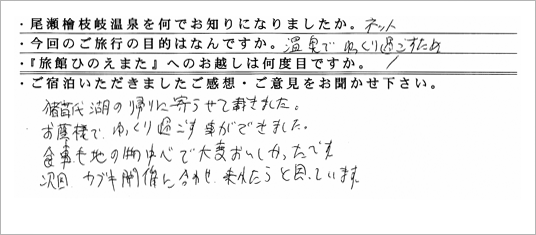 ・尾瀬檜枝岐温泉を何でお知りになりましたか。ネット
・今回のご旅行の目的はなんですか。温泉でゆっくり過ごすため
・『旅館ひのえまた』へのお越しは何度目ですか。1
・ご宿泊いただきましたご感想・ご意見をお聞かせ下さい。
猪苗代湖の帰りに寄らせて頂きました。
お蔭様で、ゆっくり過ごす事ができました。
食事も地の物中心で大変おいしかったです
次回、カブキ開催に合わせ、来れたらと思っています